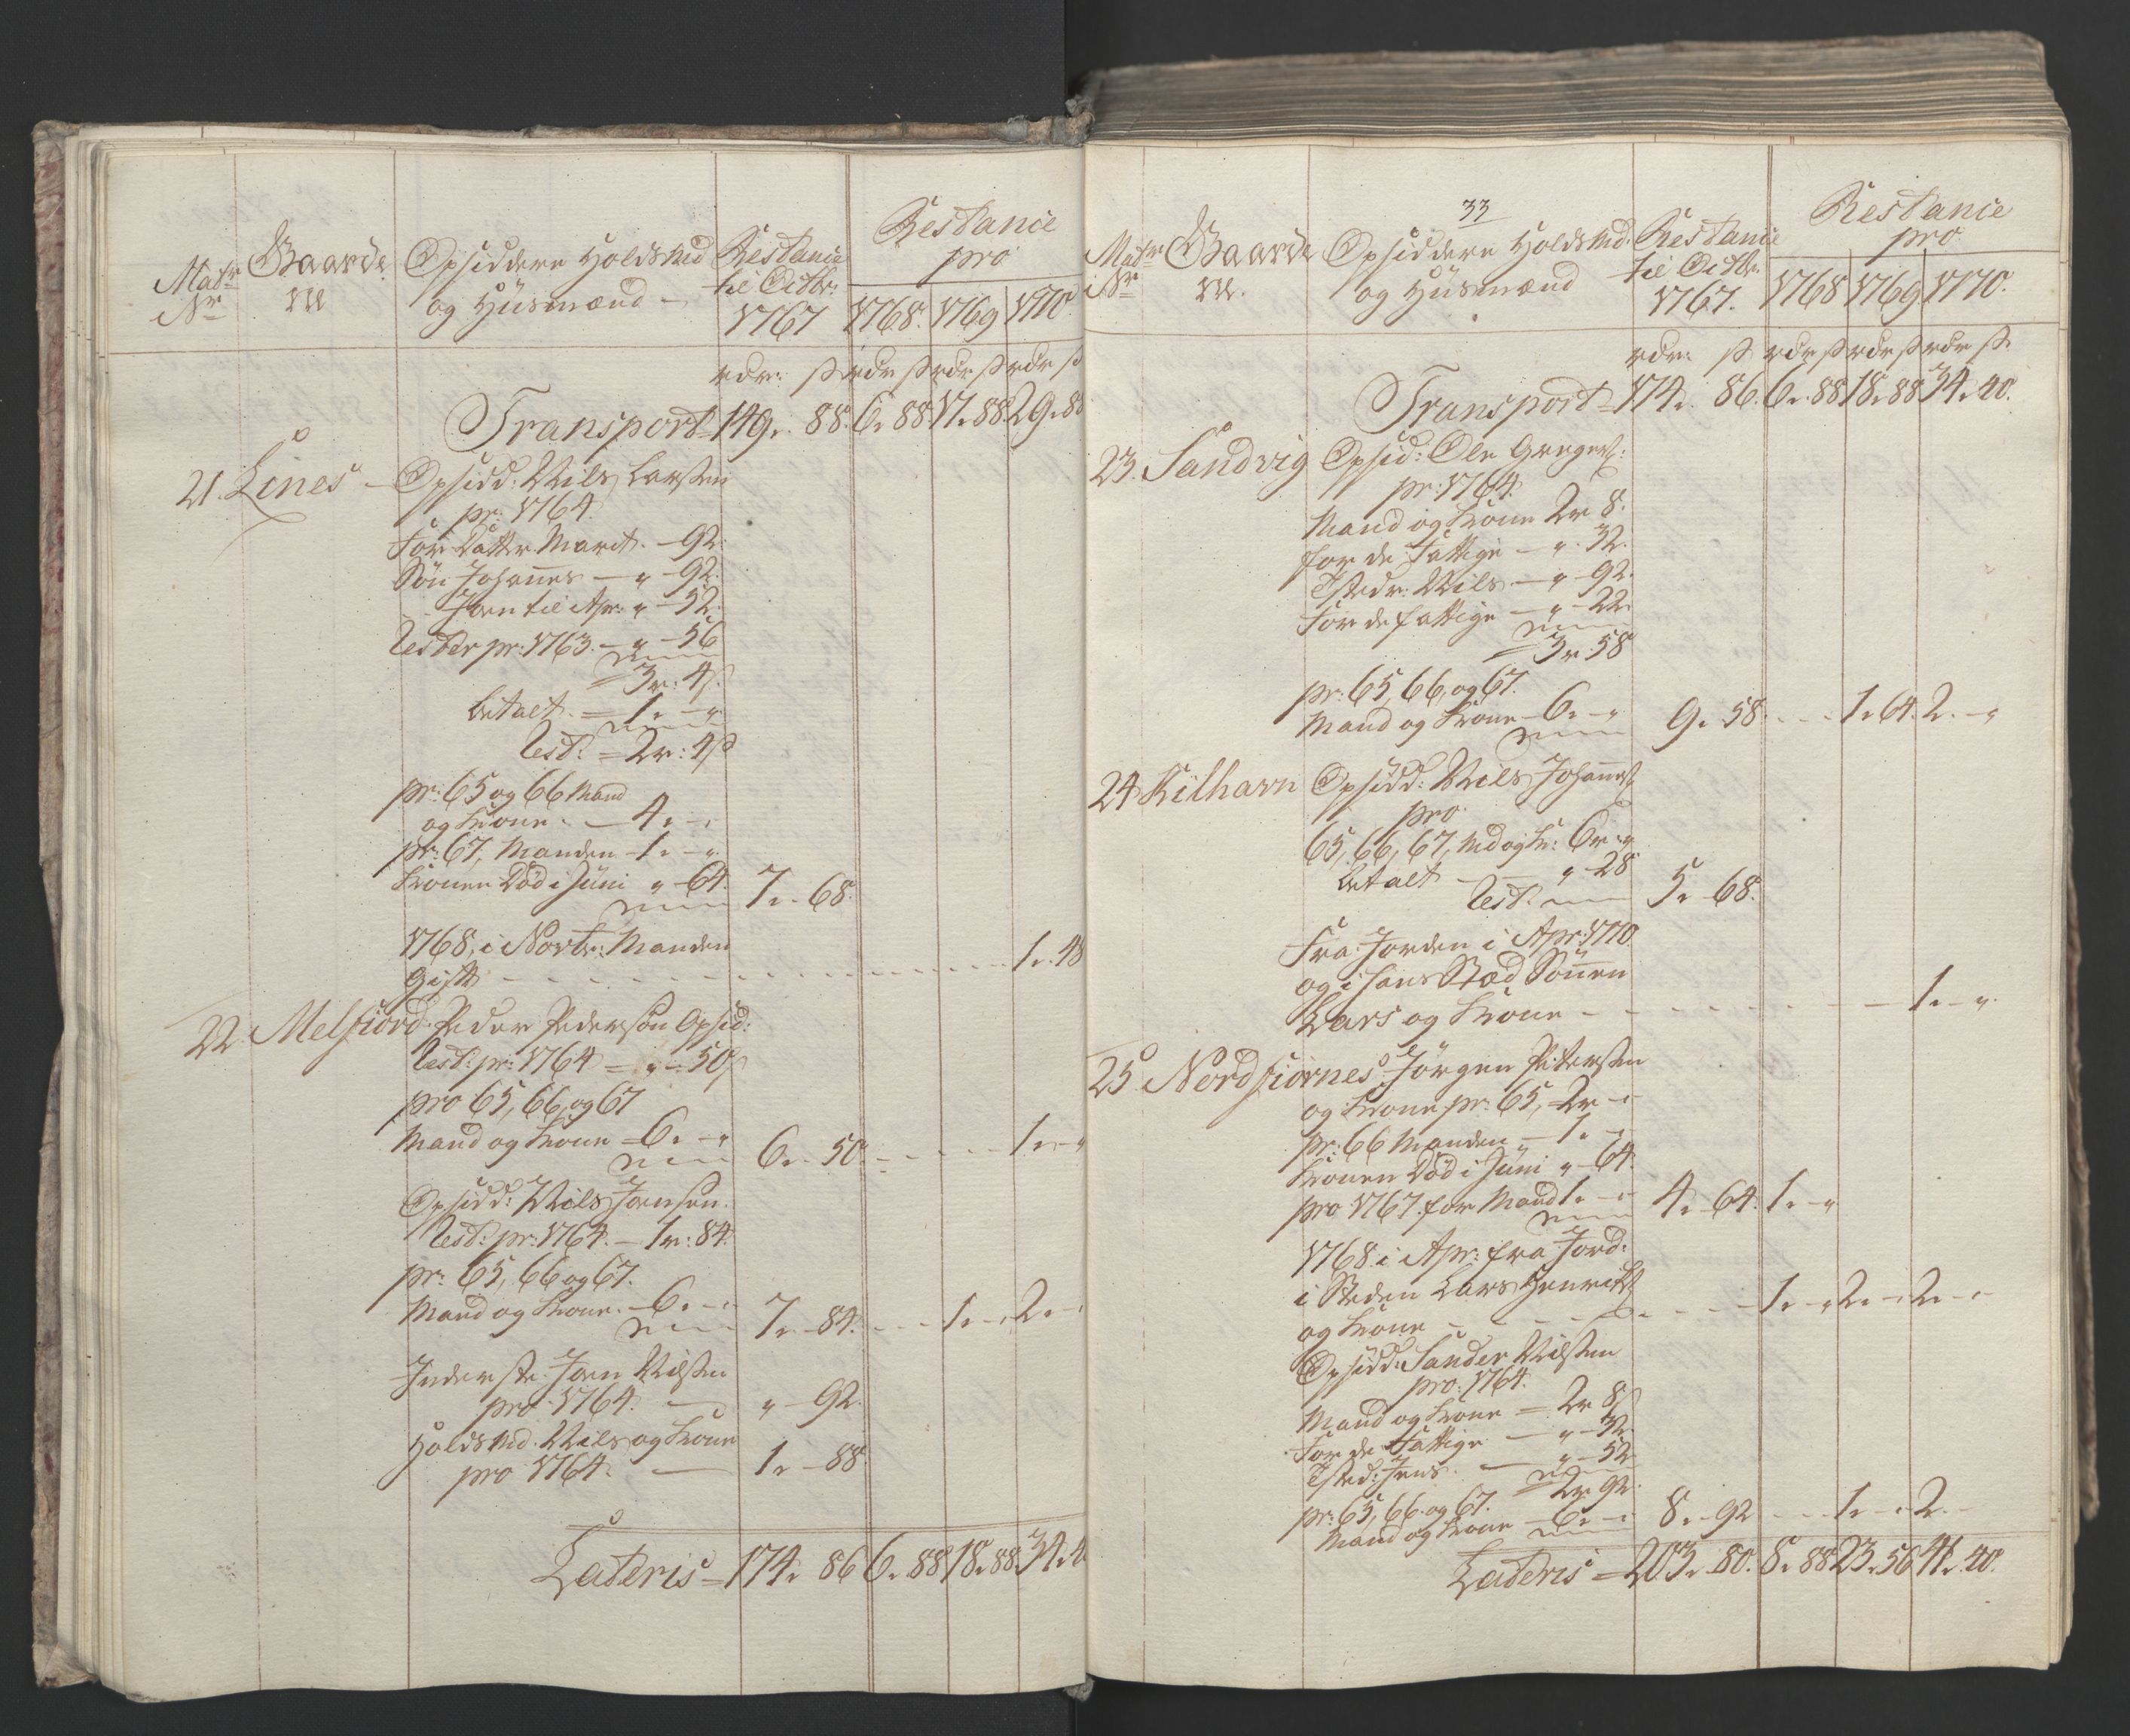 Matr Nr
Gaarde
Opsiddere Holdsmd
og Hüsmænd
Restance
til Octbr:
1767
Restance
pro
1768. 1769 1770.
rdr: ß rdr ß rdr ß rdr ß
Transport = 149. 88. 6. 88. 17. 88. 29. 88
21. Lines - Opsidd: Niels Larsen
pr: 1764.
For Datter Marit. - 92.
Søn Johannes - " - 92.
Joen til Apr: " - 52.
Rester pr: 1763. - " - 56
= 3 r: 4 ß.
betalt. = 1. - "
Rest: = 2 r: 4 ß
pr: 65 og 66 Mand
og Kone. - 4. - "
pr: 67, Manden - 1. - "
Konen Død i Juni " - 64. 7. - 68.
1768, i Novbr: Manden
gift - - - 1. 48
22. Melfiord. Peder Pedersøn Opsid:
Rest: pr: 1764 = " - 50 ß
pro 65, 66, og 67
Mand og Kone = 6. - " 6. - 50. - - - 1. - "
Opsidd: Niels Joensen.
Rest: pr: 1764. - 1 r: 84.
pr: 65, 66 og 67.
Mand og Kone. - 6. - " 7. - 84. - - - 1. - " 2. - "
Inderste: Joen Nilsen
pro 1764. - " - 92.
Holdsmd. Niels og Kone
pro 1764. - 1. - 88.
Lateris = 174. 86 6. 88 18. 88. 34. 4
33
Matr Nr
Gaarde
Opsiddere Holdsmd.
og Hüsmænd
Restance
til Octbr.
1767.
Restance
pro
1768 1769 1770.
rdr: ß rdr ß rdr ß rdr ß.
Transport = 174. 86. 6. 88 18. 88 34. 40.
23. Sandvig Opsid: Ole Gregers:
pr: 1764.
Mand og Kone 2 r 8.
for de Fattige - " 32.
Tstedr: Niels - " - 92.
For de fattige - " - 22.
= 3 r. 58
pr: 65, 66, og 67.
Mand og Kone - 6. - " 9. 58. - - - 1. 64. 2. - "
24 Kilhavn Opsidd: Niels Johans:
pro.
65, 66, 67, Md og K: 6 r: "
betalt - " - 28
Rest: 5. - 68.
Fra Jorden i Apr: 1770
og i hans Stæd Sønnen
Lars og Kone - - - 1. - "
25 Nordfiornes Jørgen Petersen
og Kone pr: 65, = 2 r - "
pr: 66 Manden - 1. - "
Konen Død i Juni " - 64.
pro 1767. for Mand 1. - " 4. - 64. 1. - "
1768. i Apr: fra Jord:
i Steden Lars Henrik:
og Kone - - - 1. - " 2. - " 2. - "
Opsidd: Sander Nilsen
pro: 1764.
Mand og Kone = 2 r 8 ß
For de Fattige - " - 32.
Tsted: Jens. - " - 52
= 2 r. 92.
pr: 65, 66 og 67.
Mand og Kone - 6. - " 8. - 92 - - - 1. - " 2. -
Lateris = 203. 80. 8. 88 23. 56 41. 40.